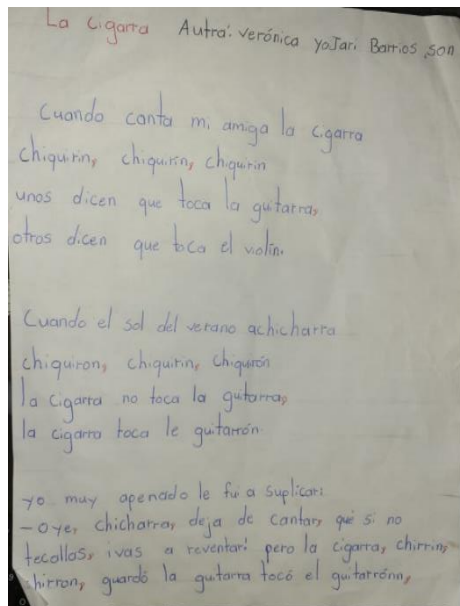 La cigarra Autra: verónica yojari Barrios son
Cuando canta mi amiga la cigarra
chiquirin, chiquirín, chiquirin
unos dicen que toca la guitarra,
otros dicen que toca el violín.
Cuando el sol del verano achicharra
chiquiron, chiquirin, chiquirón
la cigarra no toca la guitarra,
la cigarra toca le guitarrón.
yo muy apenado le fui a suplicar:
- Oye, chicharra, deja de cantar, que si no
tecallas, ivas a reventar! pero la cigarra, chirrin,
hirron, guardó la gutarra tocó el guitarrónn,